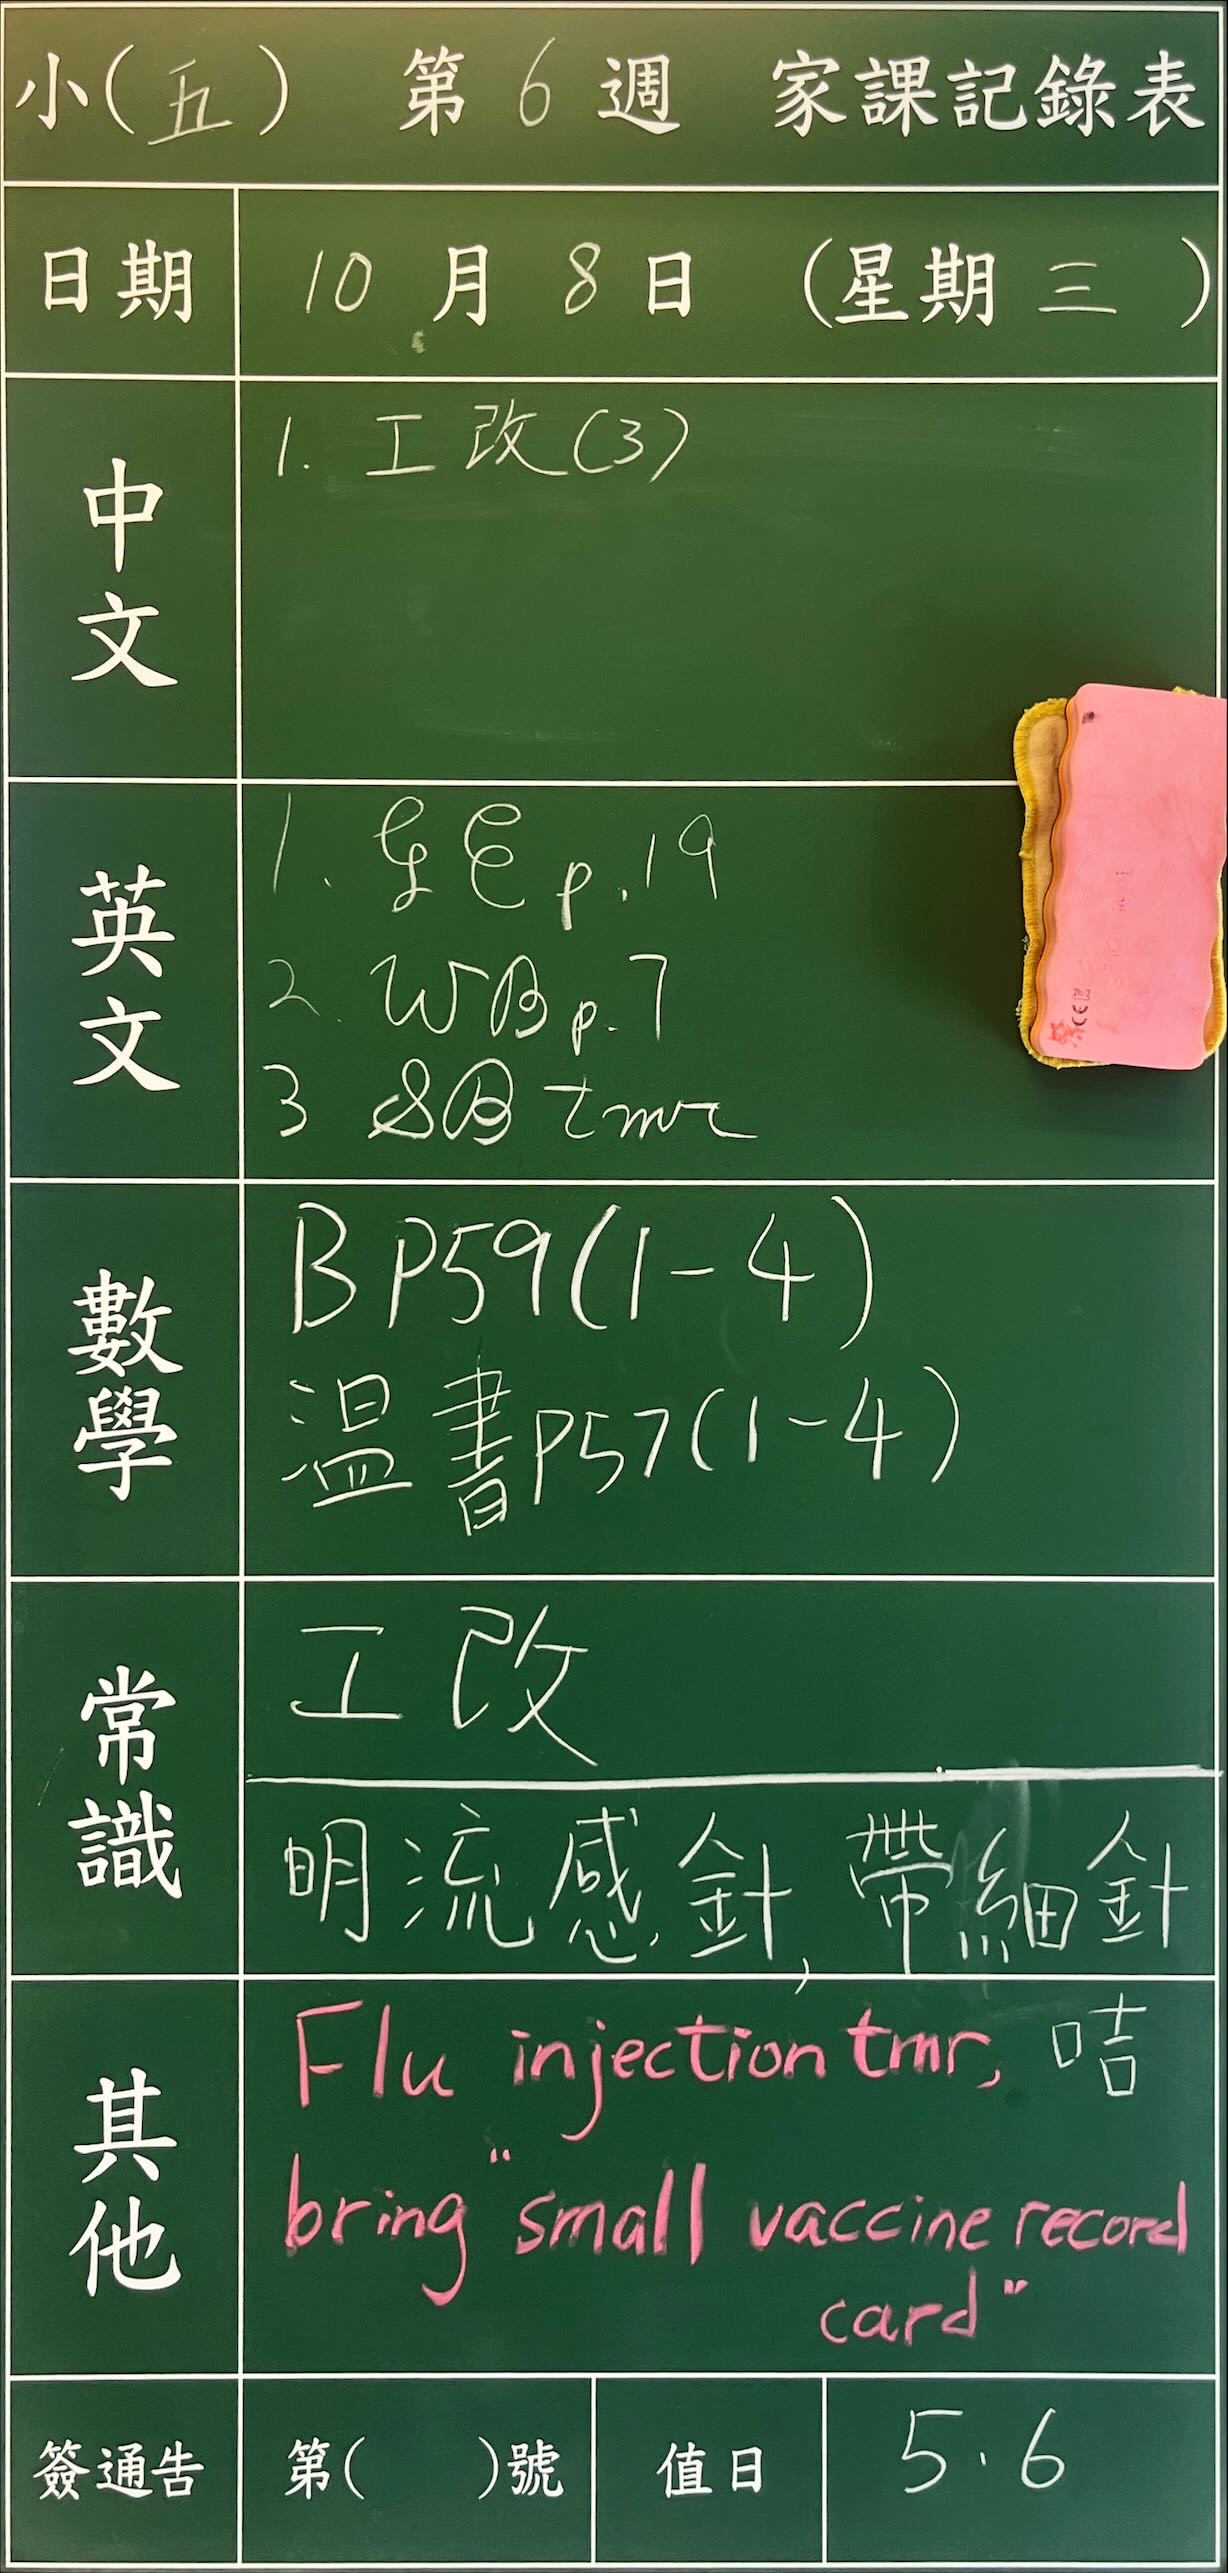 小(五) 第 6 週 家課記錄表
日期 10 月 8 日 (星期 三 )
中文
1. 工改(3)
英文
1. GE p.19
2. WB p.7
3 SB tmr
數學
B P59(1-4)
溫書P57(1-4)
常識
工改
明流感針, 帶細針
其他
Flu injection tmr, 咭
bring "small vaccine record
card"
簽通告 第( )號 值日 5.6